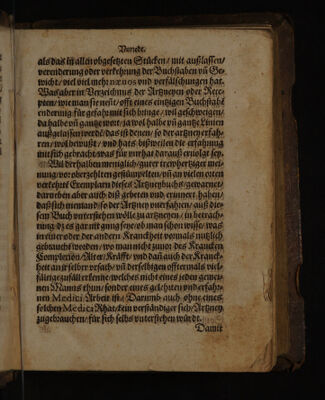 Vorrede.
als das in allen obgesetzten Stücken / mit außlassen /
verenderung oder verkehrung der Buchstaben vñ Ge-
wicht / viel viel mehr und verfälschungen hat.
Was aber in Verzeichnus der Artzneyen oder Rece-
pten / wie man sie neñt / offt eines eintzigen Buchstabẽ
enderung für gefahr mit sich bringe / wil geschweigen /
da halbe vñ gantze wort / ja wol halbe vñ gantze Linien
außgelassen werdẽ / das ist denen / so der artzney erfah-
ren / wol bewußt / vnd hats bißweilen die erfahrung
mit sich gebracht / was für vnrhat darauß erfolgt sey.
Wil derhalben meniglich / guter trewhertziger mei-
nung / vor oberzehlten gestümpelten / vñ an vielen orten
verkehrtẽ Exemplarn dieses Artzneybuchs / gewarnet /
darneben aber auch diß gebeten vnd erinnert haben /
daß sich niemand / so der Artzney vnerfahren / auß die-
sem Buch vnterstehen wölle zu artzneyen / in betrach-
tung dz es gar nit gnug sey / ob man schon wisse / was
in einer oder der andern Kranckheit vormals nützlich
gebraucht worden / wo man nicht zuvor des Krancken
Complexion / Alter / Kräffte / vnd dañ auch der Kranck-
heit an jr selber vrsach / vñ derselbigen offtermals viel-
fältige zufäll erkenne / welches nicht eines jeden gemei-
nen Manns thun / sonder eines gelehrten vnd erfahr-
nen Medici Arbeit ist / Darumb auch ohne eines
solchen Medici Rhat / kein verständiger sich / Artzney
zugebrauchen / für sich selbs vnterstehen würdt.
Damit